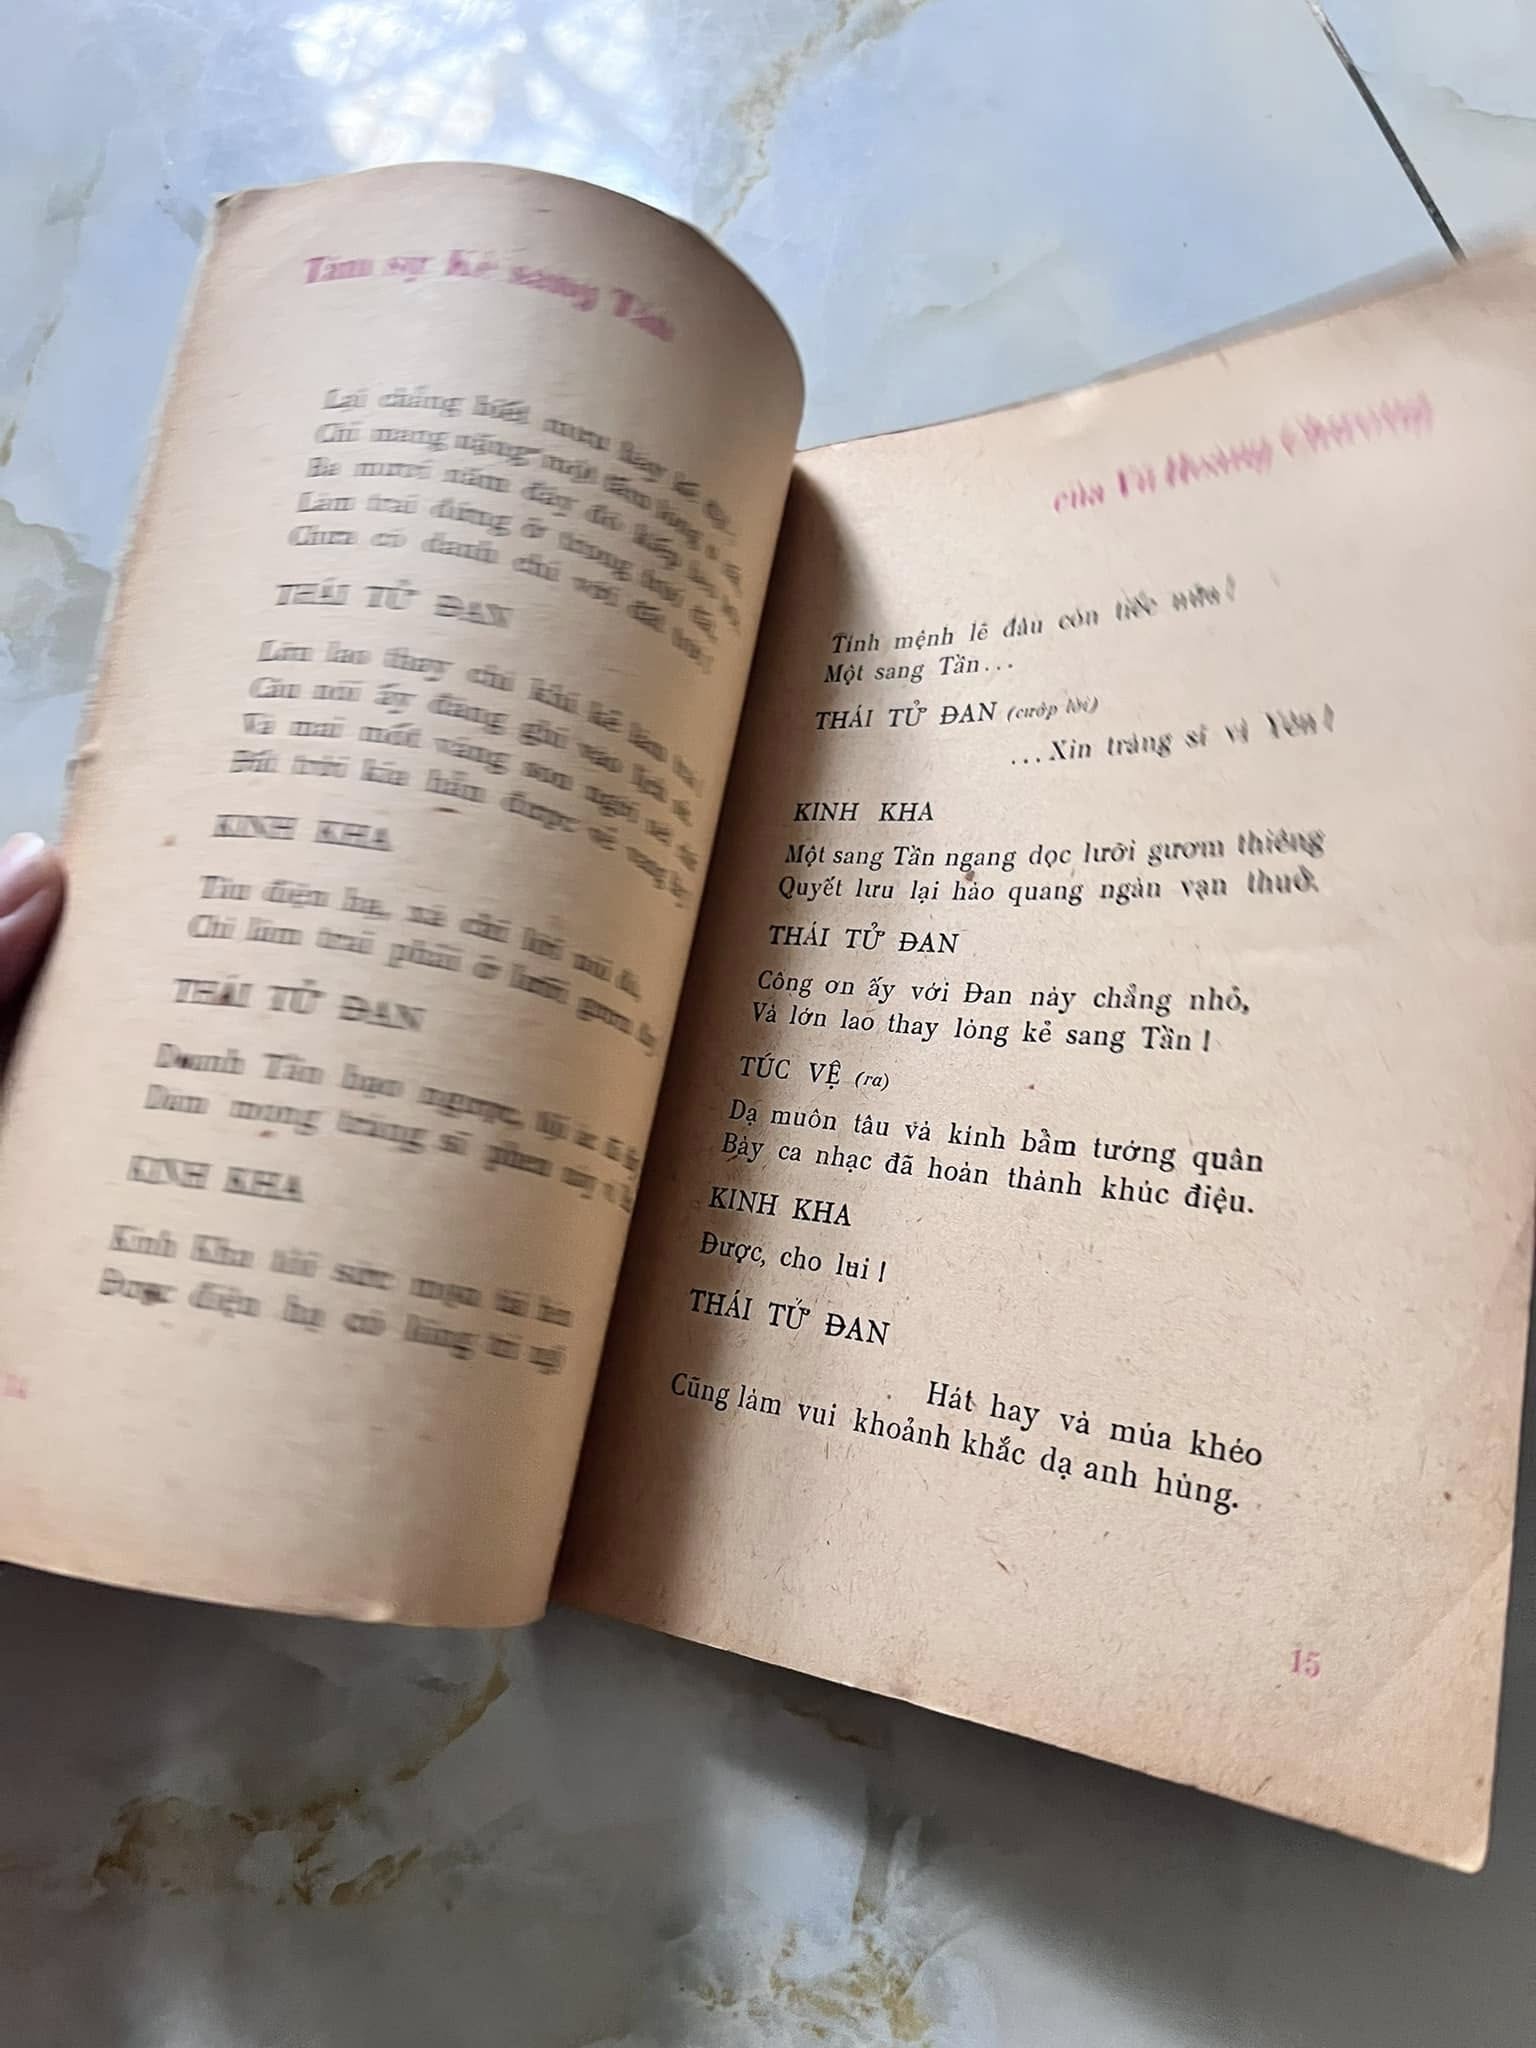 Tâm sự Kẻ sang Tần
Lại chẳng biết mưu hay kế
Chỉ mang nặng một tấm lòng
Ba mươi năm đầy đó kiếp
Làm trai đứng ở trong trời đất,
Chưa có danh chi với đất trời!
THÁI TỬ ĐAN
Lớn lao thay chí khí kẻ làm trai!
Câu nói ấy đáng ghi vào lịch sử.
Và mai mốt vàng son ngời
Đất trời kia hẳn được vẻ vang
KINH KHA
Tâu điện hạ, xá chi lời nói đó,
Chí làm trai phải ở lưỡi gươm
THÁI TỬ ĐAN
Doanh Tần bạo ngược, tội ác
Dám mong tráng sĩ phen này
KINH KHA
Kinh Kha tôi sức mọn tài
Được điện hạ có lòng tri ngộ
của Vũ Hoàng Chương
Tính mệnh lẽ đâu còn tiếc nữa!
Một sang Tần...
THÁI TỬ ĐAN (cướp lời)
...Xin tráng sĩ vì Yên!
KINH KHA
Một sang Tần ngang dọc lưỡi gươm thiêng
Quyết lưu lại hào quang ngàn vạn thuở.
THÁI TỬ ĐAN
Công ơn ấy với Đan này chẳng nhỏ,
Và lớn lao thay lòng kẻ sang Tần!
TÚC VỆ (ra)
Dạ muôn tâu và kính bẩm tướng quân
Bày ca nhạc đã hoàn thành khúc điệu.
KINH KHA
Được, cho lui!
THÁI TỬ ĐAN
Hát hay và múa khéo
Cũng làm vui khoảnh khắc dạ anh hùng.
15